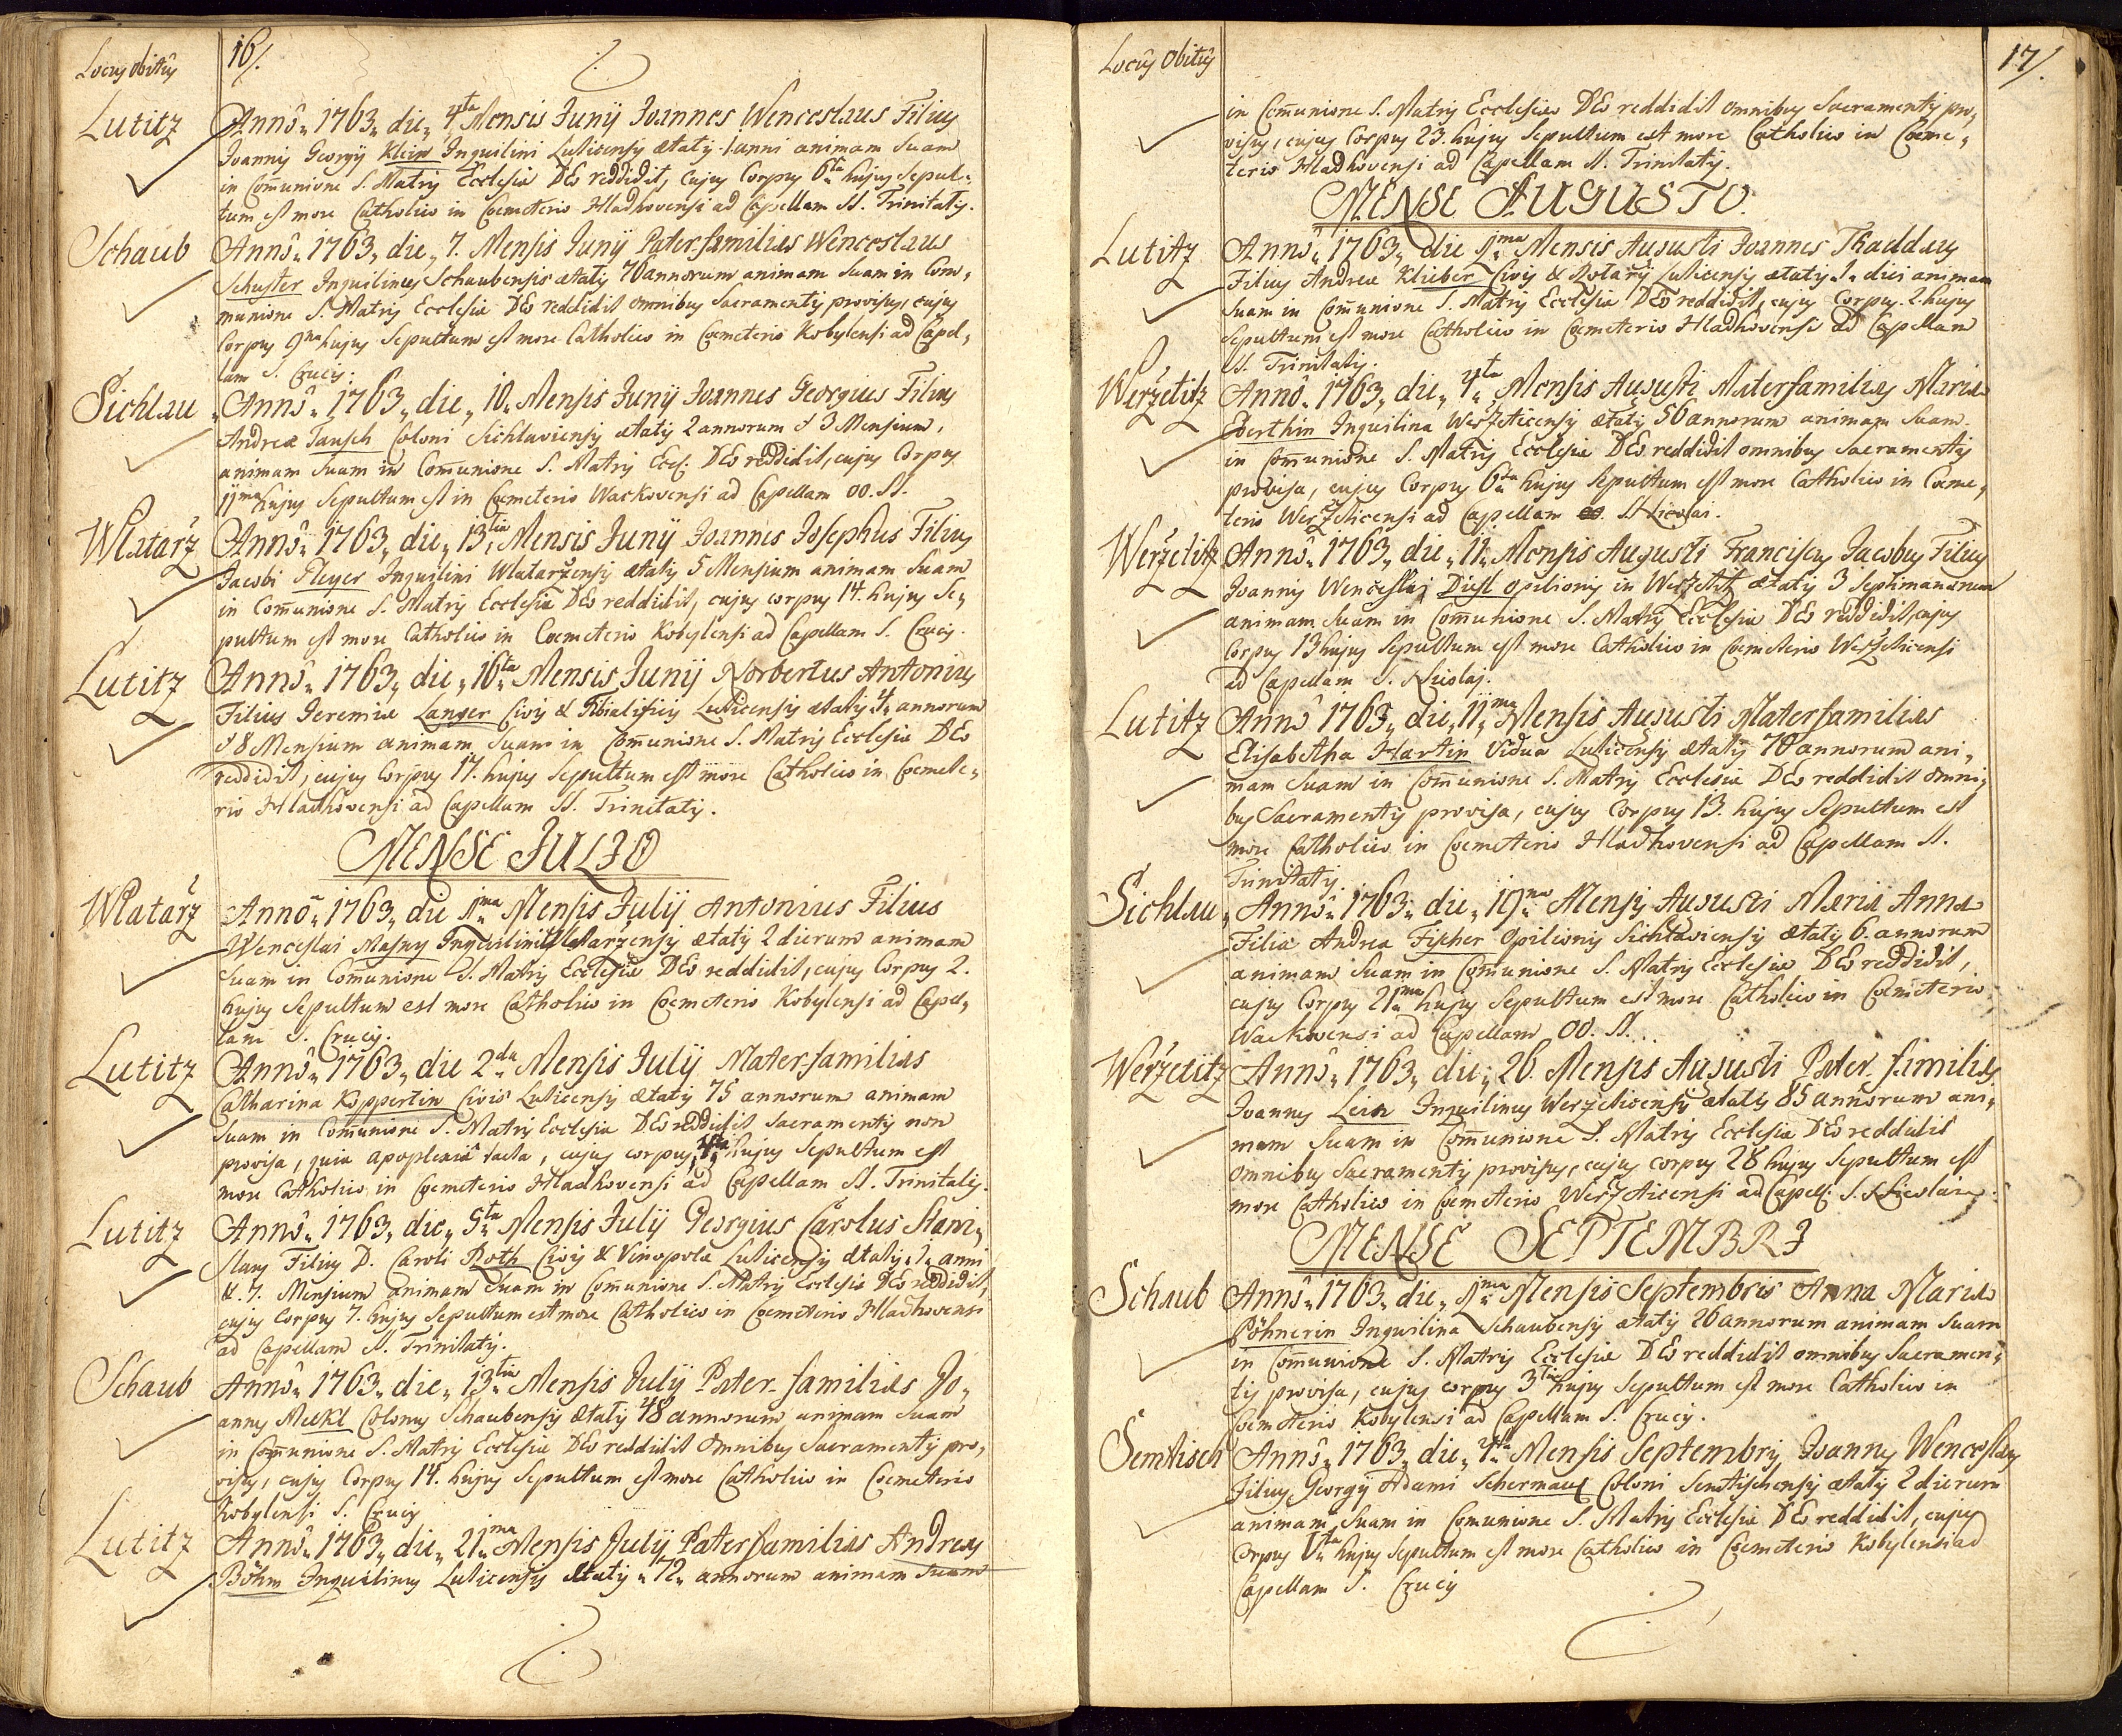 Locus obitûs
16/.
Lutitz
Annô „ 1763 „ die „ 4ta Mensis Junÿ Joannes Wenceslaus Filius
Joannis Georgÿ Klein Inquilini Luticensis ætatis 1 anni animam suam
in Com̄unione S. Matris Ecclesiæ DEo reddidit, cujus Corpus 6ta hujus Sepul„
tum est more Catholico in Cœmeterio Hladkovensi ad Capellam SS. Trinitatis.
Schaub
Annô „ 1763 „ die „ 7. Mensis Junÿ Pater familias Wenceslaus
Schuster Inquilinus Schaubensis ætatis 70 annorum animam suam in Com„
munione S. Matris Ecclesiæ DEo reddidit omnibus Sacramentis provisus, cujus
Corpus 9na hujus Sepultum est more Catholico in Cœmeterio Kobylensi ad Capel„
lam S. Crucis.
Sichlau
Annô „ 1763 „ die „ 10 „ Mensis Junÿ Joannes Georgius Filius
Andreæ Tausch Coloni Sichlaviensis ætatis 2 annorum & 3 Mensium,
animam suam in Com̄unione S. Matris Eccl: DEo reddidit, cujus Corpus
11ma hujus Sepultum est in Cœmeterio Wackovensi ad Capellam OO. SS.
Wlatarž
Annô „ 1763 „ die „ 13tia Mensis Junÿ Joannes Josephus Filius
Jacobi Pleyer Inquilini Wlataržensis ætatis 5 Mensium animam suam
in Com̄unione S. Matris Ecclesiæ DEo reddidit, cujus corpus 14. hujus Se„
pultum est more Catholico in Cœmeterio Kobylensi ad Capellam S. Crucis.
Lutitz
Annô „ 1763 „ die „ 16ta Mensis Junÿ Norbertus Antonius
Filius Jeremiæ Langer Civis & Tibialificis Luticensis ætatis 4 annorum
& 8 Mensium animam suam in Com̄unione S. Matris Ecclesiæ DEo
reddidit, cujus Corpus 17. hujus Sepultum est more Catholico in Cœmete„
rio Hladkovensi ad Capellam SS. Trinitatis.
MENSE JULIO
Wlatarž
Annô „ 1763 „ die 1ma Mensis Julÿ Antonius Filius
Wenceslai Masny Inquilini Wlataržensis ætatis 2 dierum animam
suam in Com̄unione S. Matris Ecclesiæ DEo reddidit, cujus Corpus 2.
hujus Sepultum est more Catholico in Cœmeterio Kobylensi ad Capel„
lam S. Crucis.
Lutitz
Annô „ 1763 „ die 2da Mensis Julÿ Mater familias
Catharina Koppertin Civis Luticensis ætatis 75 annorum animam
suam in Com̄unione S. Matris Ecclesiæ DEo reddidit Sacramentis non
provisa, quia apoplexiâ tacta, cujus corpus 4ta hujus Sepultum est
more Catholico in Cœmeterio Hladkovensi ad Capellam SS. Trinitatis.
Lutitz
Annô „ 1763 „ die „ 5ta Mensis Julÿ Georgius Carolus Stani„
slaus Filius D. Caroli Roth Civis & Vinopolæ Luticensis ætatis 1 anni
&. 7. Mensium animam suam in Com̄unione S. Matris Ecclesiæ DEo reddidit,
cujus Corpus 7. hujus Sepultum est more Catholico in Cœmeterio Hladkovensi
ad Capellam SS. Trinitatis.
Schaub
Annô „ 1763 „ die „ 13tia Mensis Julÿ Pater familias Jo„
annes Meckl Colonus Schaubensis ætatis 48 annorum animam suam
in Com̄unione S. Matris Ecclesiæ DEo reddidit omnibus Sacramentis pro„
visus, cujus Corpus 14. hujus Sepultum est more Catholico in Cœmeterio
Kobylensi S. Crucis
Lutitz
Annô „ 1763 „ die „ 21ma Mensis Julÿ Pater familias Andreas
Böhm Inquilinus Luticensis ætatis „ 72 „ annorum animam suam
Locus Obitûs
17/.
in Com̄unione S. Matris Ecclesiæ DEo reddidit omnibus Sacramentis pro„
visus, cujus Corpus 23. hujus Sepultum est more Catholico in Cœme„
terio Hladkovensi ad Capellam SS. Trinitatis.
MENSE AUGUSTO.
Lutitz
Annô „ 1763 „ die 1ma Mensis Augusti Joannes Thaddæus
Filius Andreæ Klieber Civis & Rotarÿ Luticensis ætatis 1 diei animam
suam in Com̄unione S. Matris Ecclesiæ DEo reddidit, cujus Corpus 2. hujus
Sepultum est more Catholico in Cœmeterio Hladkovensi ad Capellam
SS. Trinitatis.
Weržetitz
Annô „ 1763 „ die „ 4ta Mensis Augusti Materfamilias Maria
Eberthin Inquilina Weržeticensis ætatis 56 annorum animam suam
in Com̄unione S. Matris Ecclesiæ DEo reddidit omnibus Sacramentis
provisa, cujus Corpus 6ta hujus Sepultum est more Catholico in Cœme„
terio Weržeticensi ad Capellam S. Nicolai.
Weržetitz
Annô „ 1763 „ die „ 11 „ Mensis Augusti Franciscus Jacobus Filius
Joannis Wenceslai Dietl opilionis in Weržetitz ætatis 3 Septimanarum
animam suam in Com̄unione S. Matris Ecclesiæ DEo reddidit, cujus
Corpus 13 hujus Sepultum est more Catholico in Cœmeterio Weržeticensi
ad Capellam S. Nicolai.
Lutitz
Annô 1763 „ die „ 11ma Mensis Augusti Materfamilias
Elisabetha Hartin Vidua Luticensis ætatis 70 annorum ani„
mam suam in Com̄unione S. Matris Ecclesiæ DEo reddidit omni„
bus Sacramentis provisa, cujus Corpus 13. hujus Sepultum est
more Catholico in Cœmeterio Hladkovensi ad Capellam SS.
Trinitatis.
Sichlau
Annô „ 1763 „ die „ 19na Mensis Augusti Maria Anna
Filia Andreæ Fischer Opilionis Sichlaviensis ætatis 6. annorum
animam suam in Com̄unione S. Matris Ecclesiæ DEo reddidit,
cujus Corpus 21ma hujus Sepultum est more Catholico in Cœmeterio
Wackovensi ad Capellam OO. SS...
Weržetitz
Annô „ 1763 „ die „ 26. Mensis Augusti Pater familias
Joannes Lein Inquilinus Weržeticensis ætatis 85 annorum ani„
mam suam in Com̄unione S. Matris Ecclesiæ DEo reddidit
omnibus Sacramentis provisus, cujus corpus 28 hujus Sepultum est
more Catholico in Cœmeterio Weržeticensi ad Capell: S. Nicolai.
MENSE SEPTEMBRI
Schaub
Annô „ 1763 „ die „ 1ma Mensis Septembris Anna Maria
Pöhnerin Inquilina Schaubensis ætatis 26 annorum animam suam
in Com̄unione S. Matris Ecclesiæ DEo reddidit omnibus Sacramen„
tis provisa, cujus corpus 3tia hujus Sepultum est more Catholico in
Cœmeterio Kobylensi ad Capellam S. Crucis.
Semtisch
Annô „ 1763 „ die „ 4ta Mensis Septembris Joannes Wenceslaus
Filius Georgÿ Adami Coloni Semtischensis ætatis 2 dierum
animam suam in Com̄unione S. Matris Ecclesiæ DEo reddidit, cujus
Corpus hujus Sepultum est more Catholico in Cœmeterio Kobylensi ad
Capellam S. Crucis